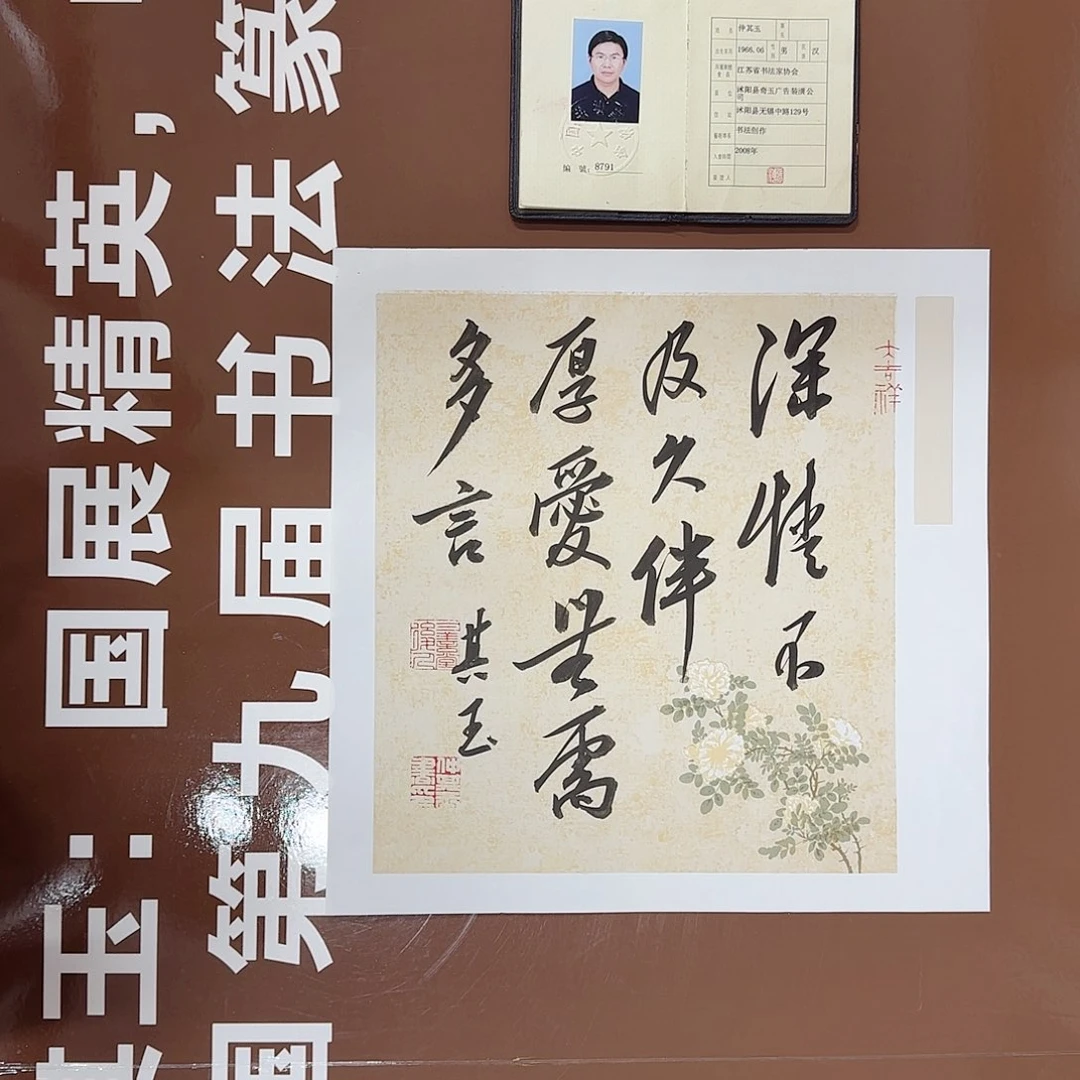 玉：国展精英，
国第九届书法篆
编號 8791
姓名 仲其玉
1966.06 性别 男 民族 汉
江苏省书法家协会
沭阳县奇玉广告装潢公
司
沭阳县无锡中路129号
书法创作
2008年
大吉祥
深情不
及久伴
厚愛無需
多言 其玉